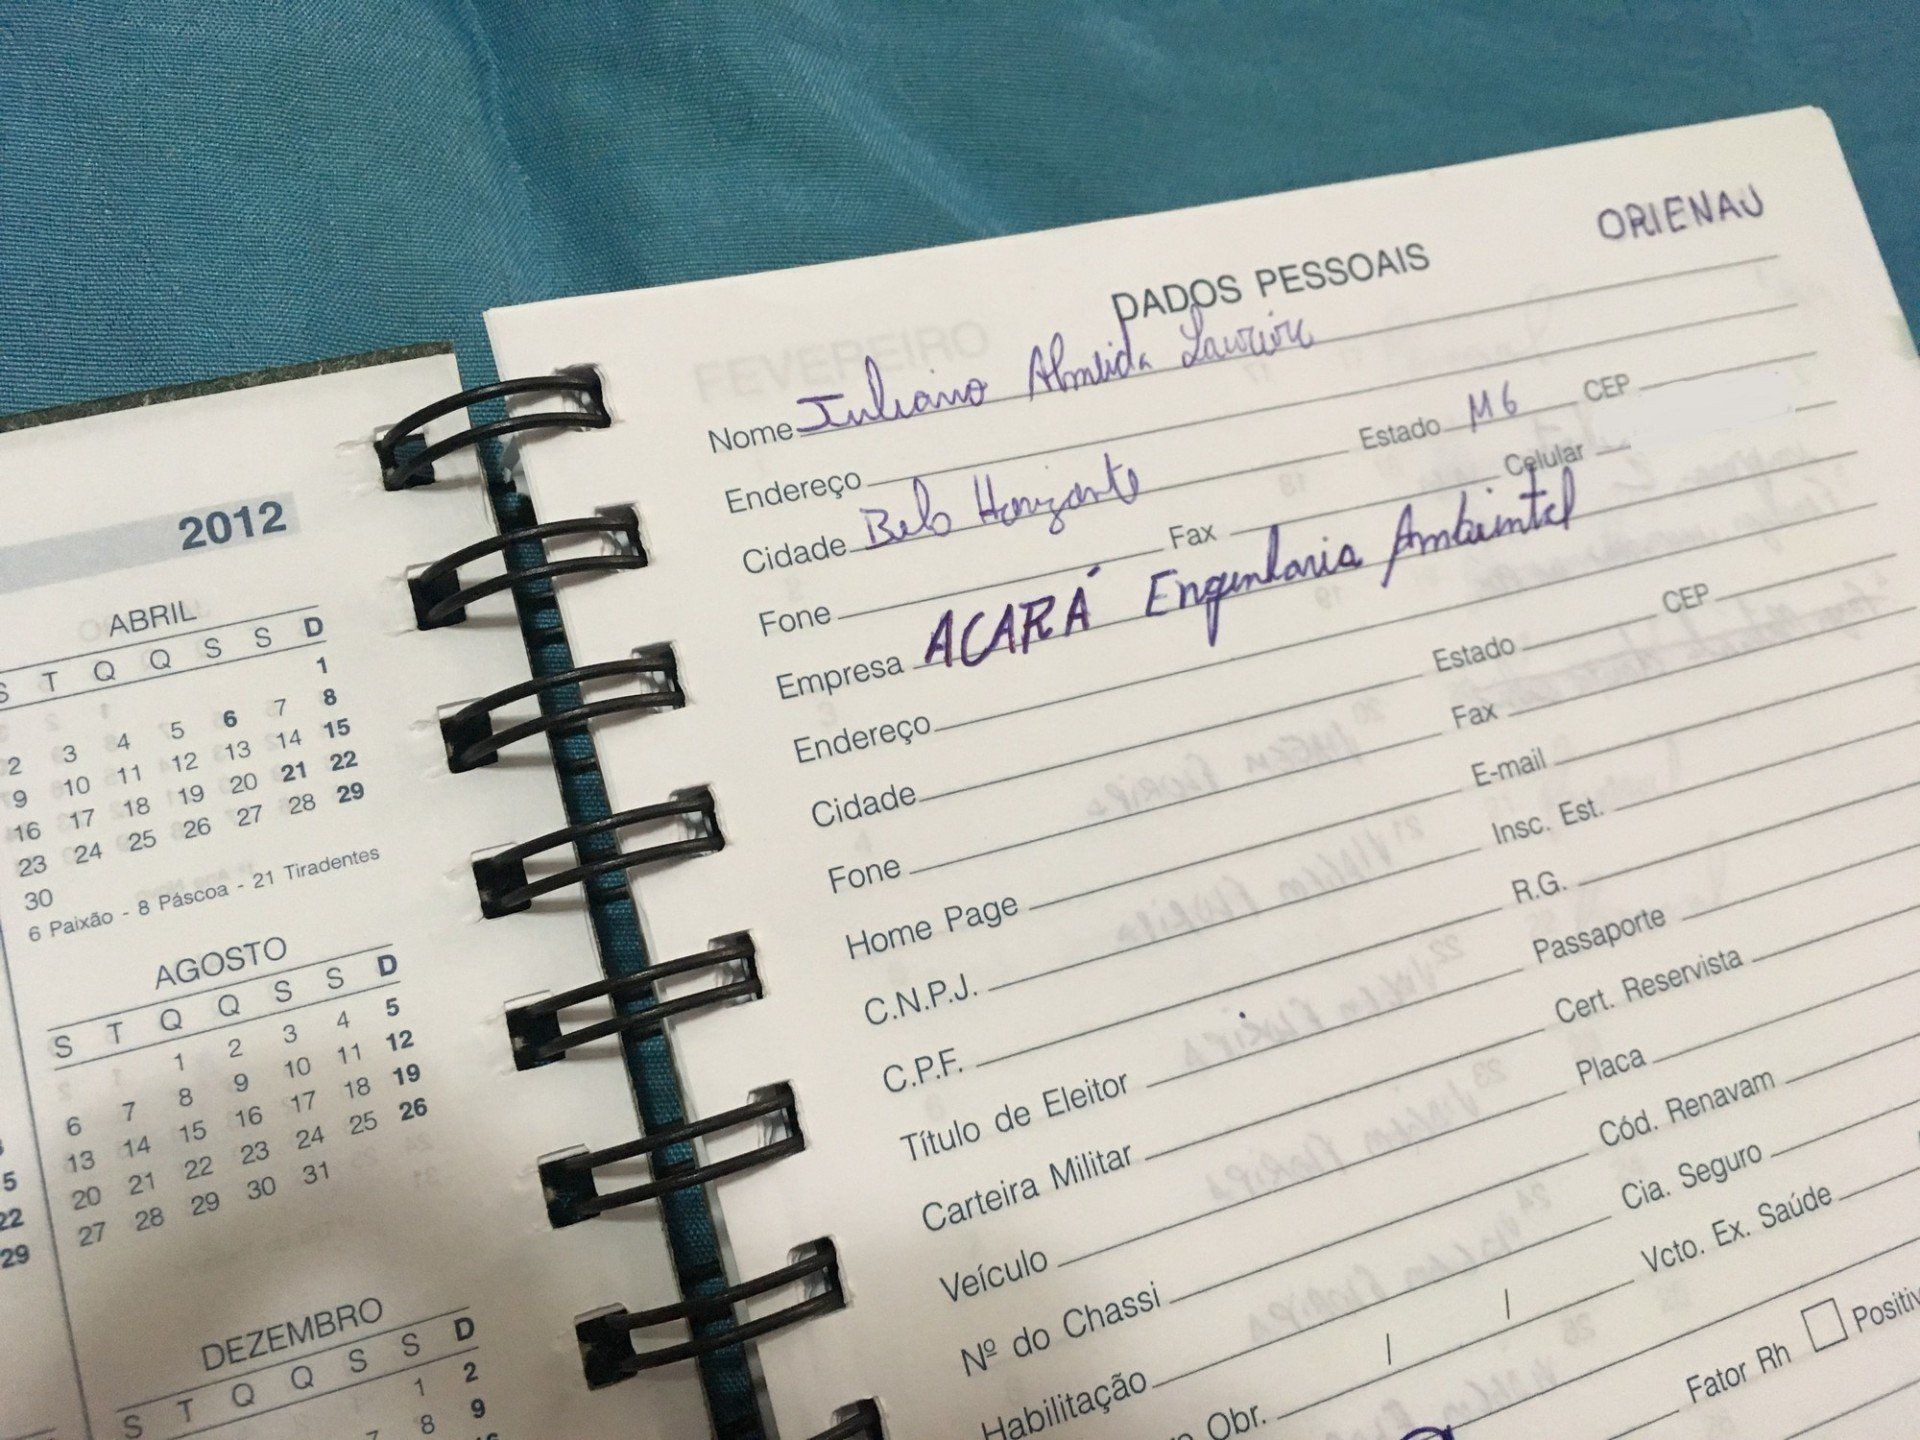 2012
ABRIL
S T Q Q S S D
1
2 3 4 5 6 7 8
9 10 11 12 13 14 15
16 17 18 19 20 21 22
23 24 25 26 27 28 29
30
6 Paixão - 8 Páscoa - 21 Tiradentes
AGOSTO
S T Q Q S S D
1 2 3 4 5
6 7 8 9 10 11 12
13 14 15 16 17 18 19
20 21 22 23 24 25 26
27 28 29 30 31
5
22
29
DEZEMBRO
S T Q Q S S D
1 2
7 8 9
ORIENAJ
DADOS PESSOAIS
Nome Juliano Almeida
Endereço
Cidade Belo Horizonte Estado MG CEP
Fone Fax Celular
Empresa ACARÁ Engenharia Ambiental
Endereço
Cidade Estado CEP
Fone Fax
Home Page E-mail
C.N.P.J. Insc. Est.
C.P.F. R.G.
Título de Eleitor Passaporte
Carteira Militar Cert. Reservista
Veículo Placa
Nº do Chassi Cód. Renavam
Habilitação Cia. Seguro
Obr. / / Vcto. Ex. Saúde
Fator Rh Positiv
FEVEREIRO